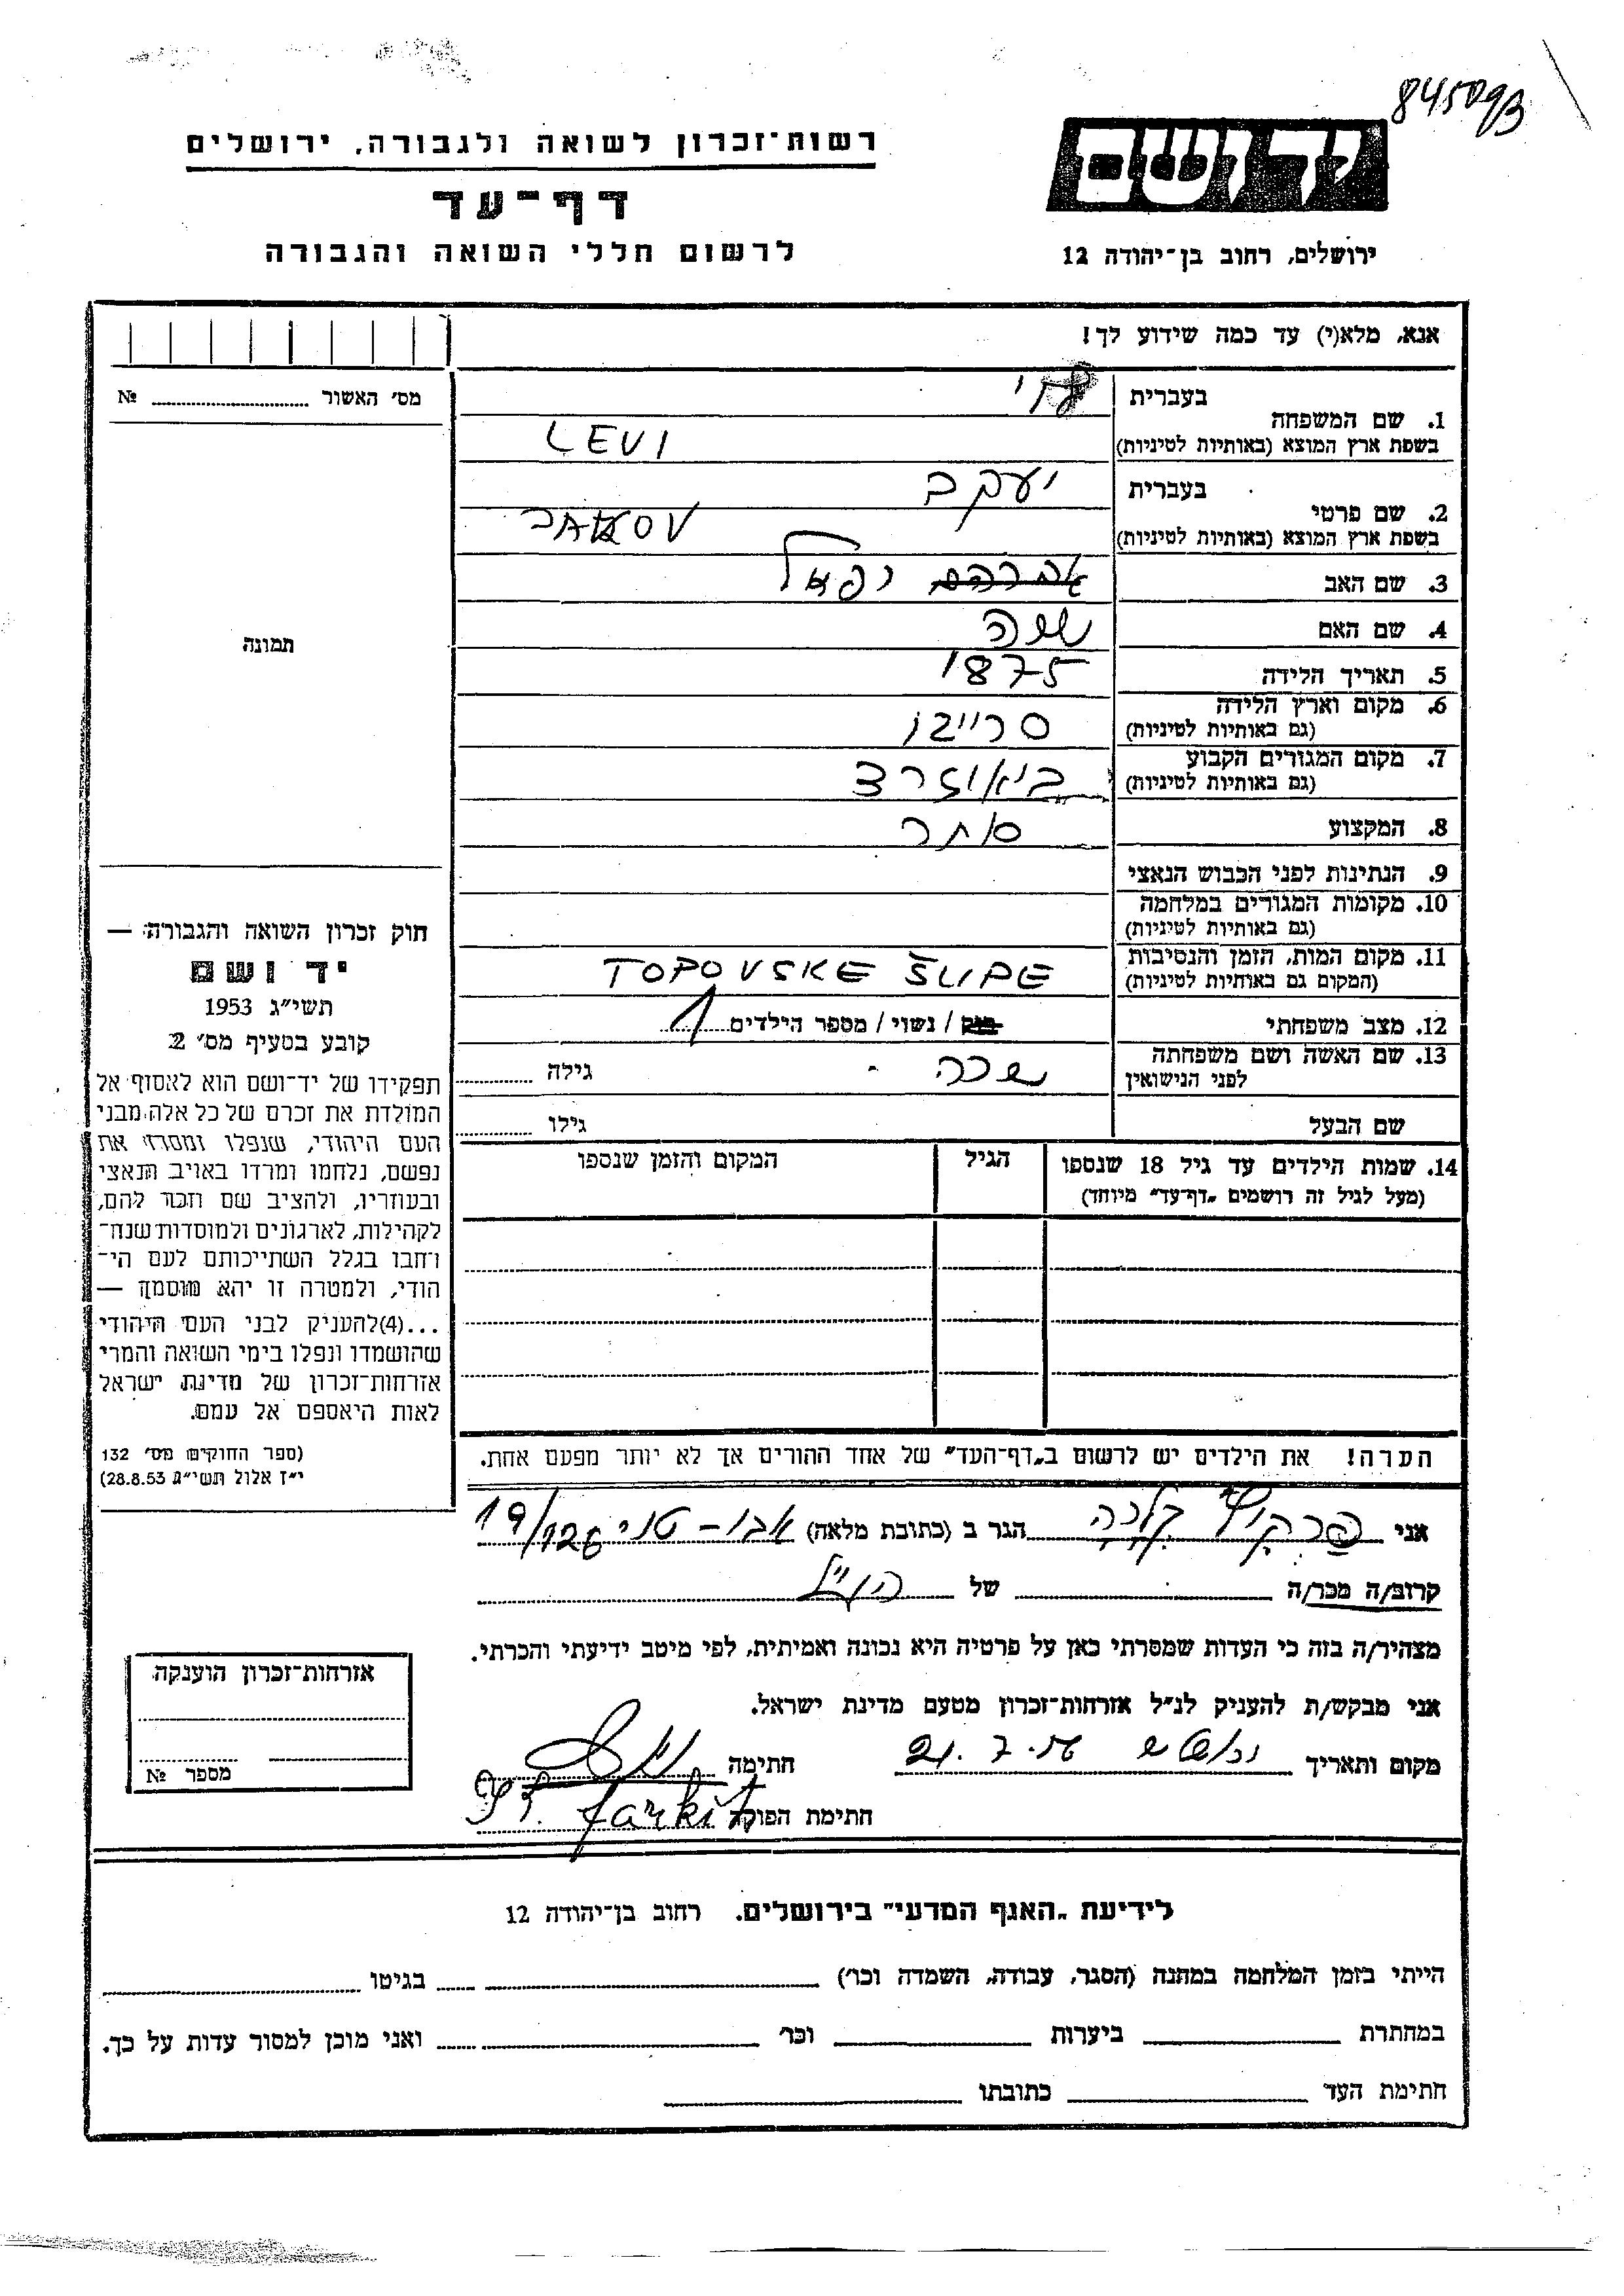 845093
רשות־זכרון לשואה ולגבורה, ירושלים
דף־עד
לרשום חללי השואה והגבורה
יד ושם
ירושלים, רחוב בן־יהודה 12
אנא, מלא(י) עד כמה שידוע לך!
מס׳ האשור № 
בעברית לוי
1. שם המשפחה
בשפת ארץ המוצא (באותיות לטיניות) LEVI
בעברית יעקב
2. שם פרטי
בשפת ארץ המוצא (באותיות לטיניות) JAKOV
3. שם האב אברהם רפאל
4. שם האם שרה
5. תאריך הלידה 1875
6. מקום וארץ הלידה
(גם באותיות לטיניות) סרייבו
7. מקום המגורים הקבוע
(גם באותיות לטיניות) ביאוגרד
8. המקצוע סוחר
9. הנתינות לפני הכבוש הנאצי
10. מקומות המגורים במלחמה
(גם באותיות לטיניות)
11. מקום המות, הזמן והנסיבות
(המקום גם באותיות לטיניות) TOPOVSKE ŠUPE
12. מצב משפחתי רוק / נשוי / מספר הילדים 1
13. שם האשה ושם משפחתה
לפני הנישואין שרה גילה
שם הבעל גילו
14. שמות הילדים עד גיל 18 שנספו הגיל המקום והזמן שנספו
(מעל לגיל זה רושמים „דף־עד״ מיוחד)
הערה! את הילדים יש לרשום ב„דף־העד״ של אחד ההורים אך לא יותר מפעם אחת.
תמונה
חוק זכרון השואה והגבורה —
יד ושם
תשי״ג 1953
קובע בסעיף מס׳ 2
תפקידו של יד־ושם הוא לאסוף אל
המולדת את זכרם של כל אלה מבני
העם היהודי, שנפלו ומסרו את
נפשם, נלחמו ומרדו באויב הנאצי
ובעוזריו, ולהציב שם וזכר להם,
לקהילות, לארגונים ולמוסדות שנח־
רבו בגלל השתייכותם לעם הי־
הודי, ולמטרה זו יהא מוסמך —
...(4)להעניק לבני העם היהודי
שהושמדו ונפלו בימי השואה והמרי
אזרחות־זכרון של מדינת ישראל
לאות היאספם אל עמם.
(ספר החוקים מס׳ 132
י״ז אלול תשי״ג 28.8.53)
אני פרקיץ הגר ב (כתובת מלאה) 19/126
קרוב/ה מכר/ה של הנ״ל
מצהיר/ה בזה כי העדות שמסרתי כאן על פרטיה היא נכונה ואמיתית, לפי מיטב ידיעתי והכרתי.
אני מבקש/ת להעניק לנ״ל אזרחות־זכרון מטעם מדינת ישראל.
מקום ותאריך 21.7.56 חתימה
חתימת הפוקד
אזרחות־זכרון הוענקה
מספר №
לידיעת „האגף המדעי״ בירושלים. רחוב בן־יהודה 12
הייתי בזמן המלחמה במחנה (הסגר, עבודה, השמדה וכו׳) בגיטו
במחתרת ביערות וכו׳ ואני מוכן למסור עדות על כך.
חתימת העד כתובתו